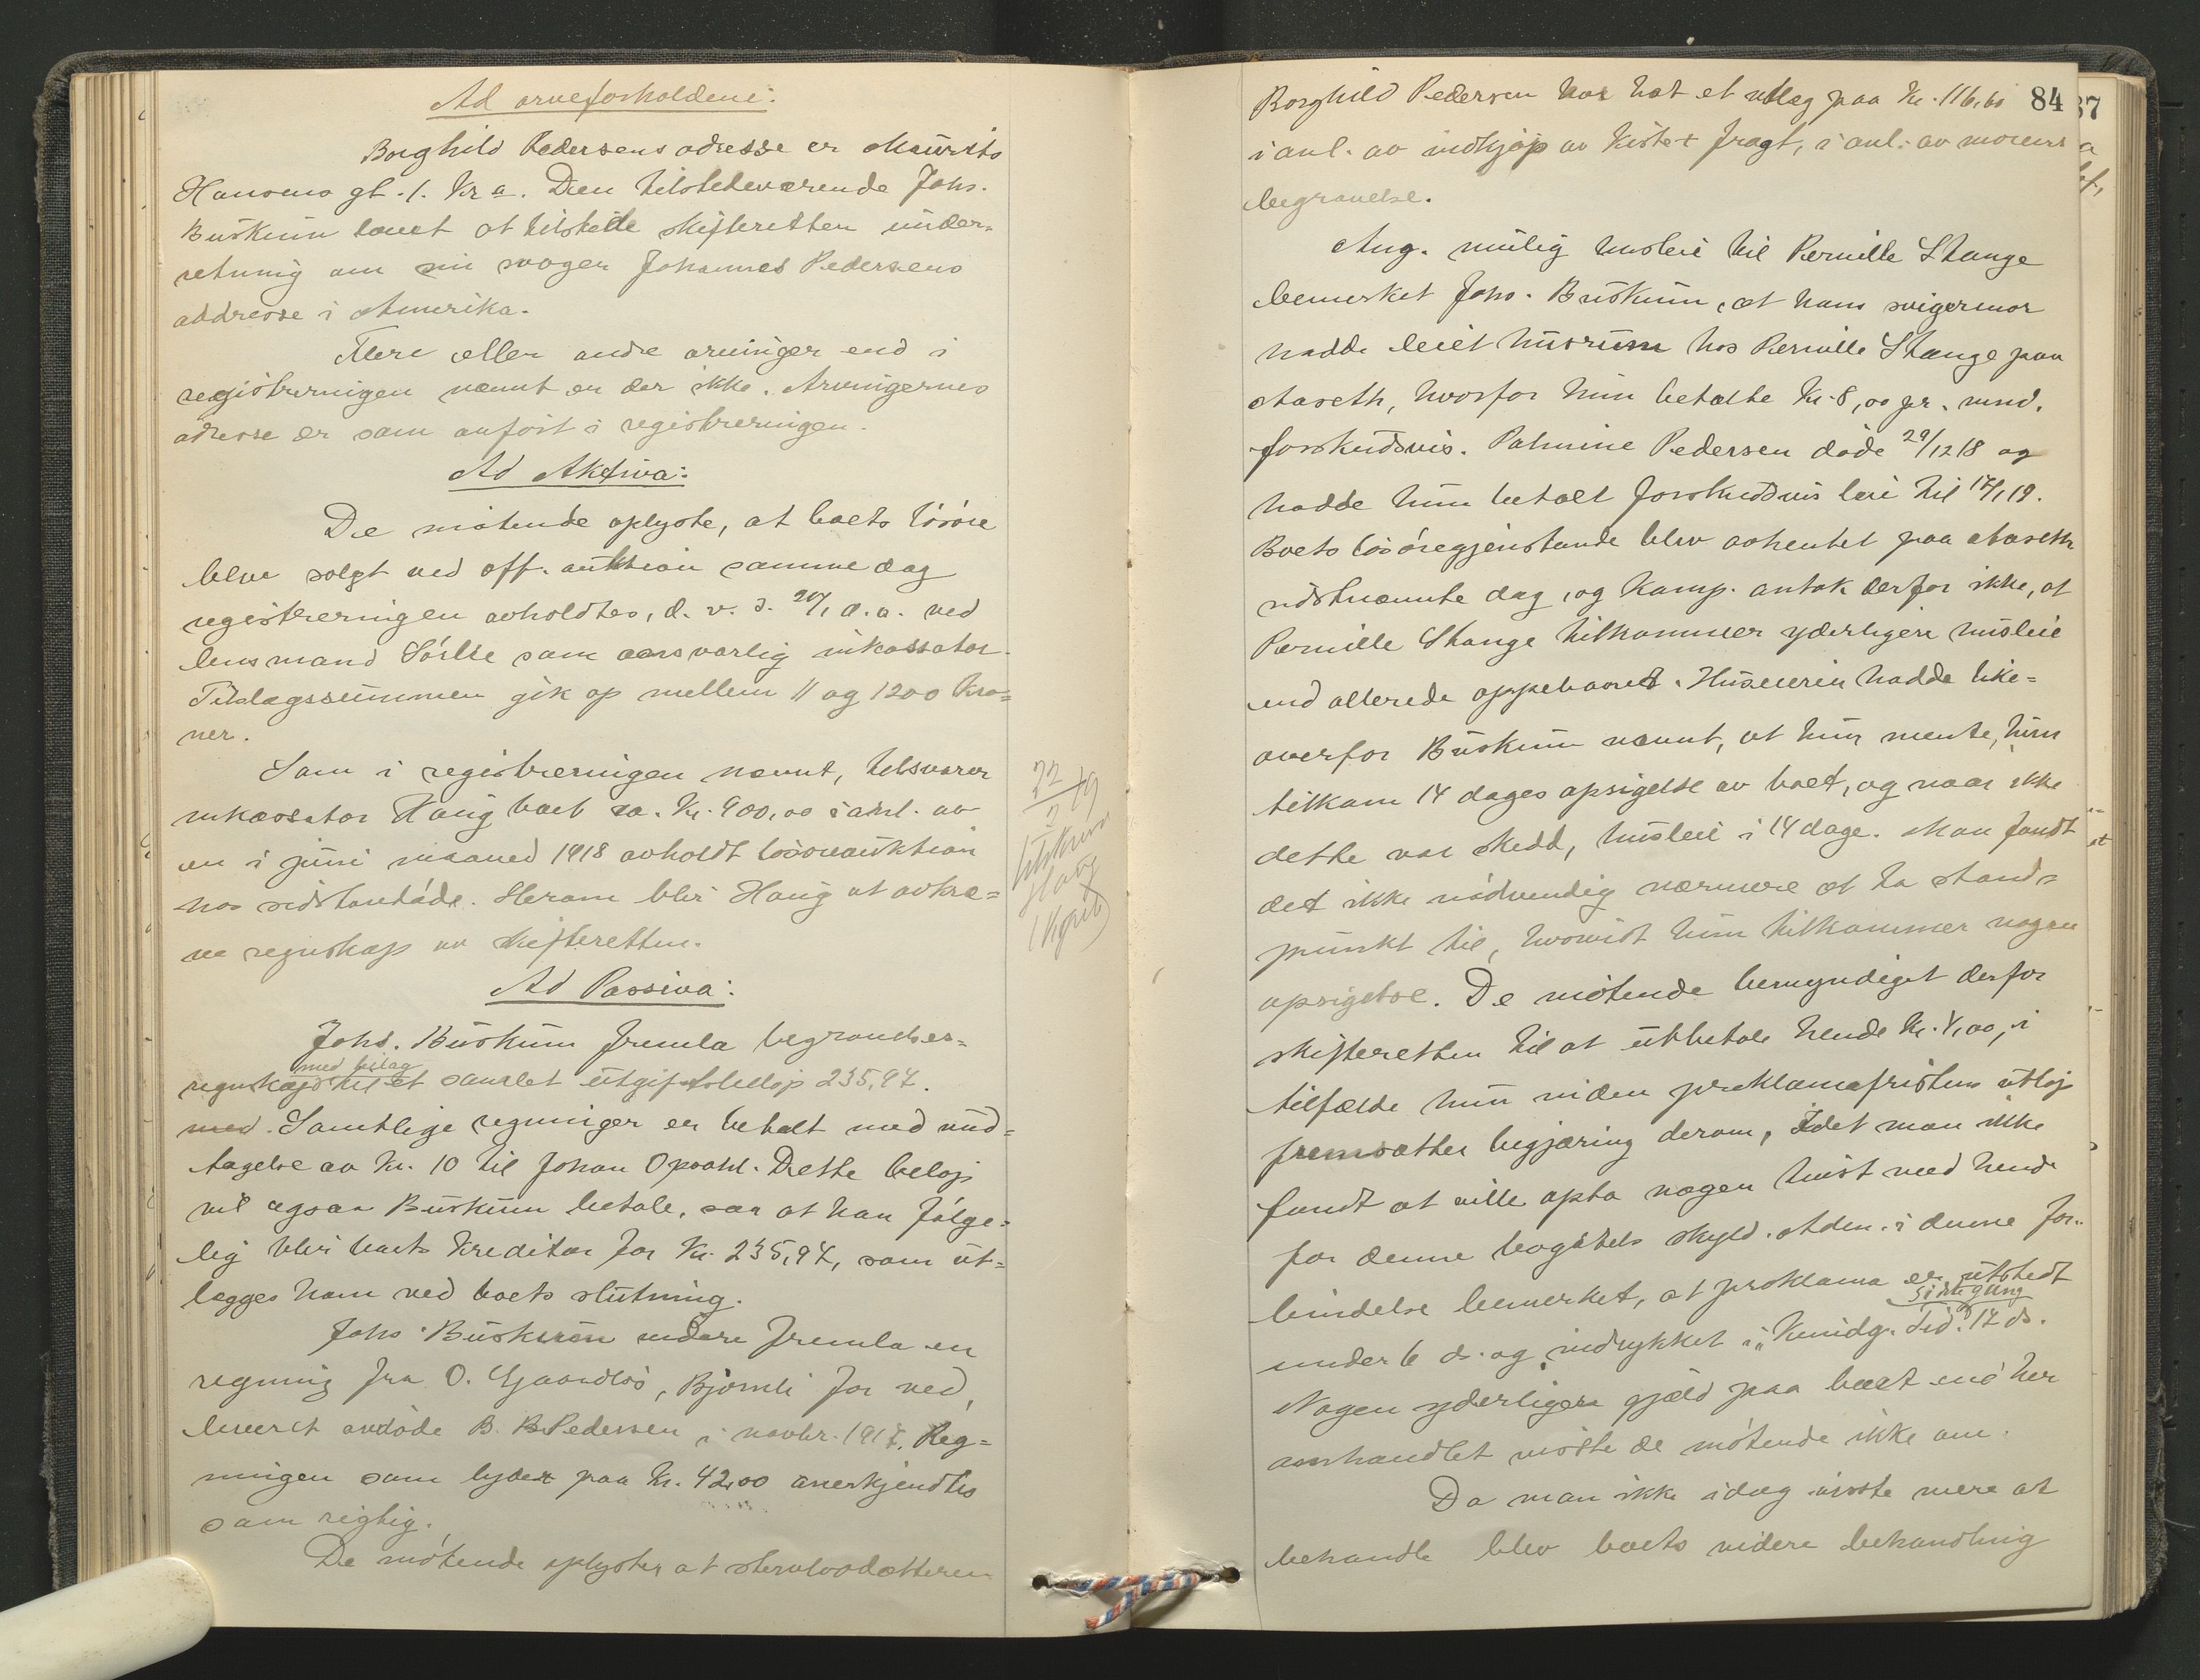 Ad arveforholdene:
Borghild Pedersens adresse er Maurits
Hansens gt. 1. Kr a. Den tilstedeværende Johs.
Buskum lovet at tilstille skifteretten under-
retning om sin svoger Johannes Pedersens
addresse i Amerika.
Flere eller andre arvinger end i
registreringen nævnt er der ikke. Arvingernes
adresse er som anført i registreringen.
Ad Aktiva:
De møtende oplyste, at boets løsøre
blev solgt ved off. auktion samme dag
registreringen avholdtes, d. v. s. 20/1 d. a. ved
lensmand som ansvarlig inkassator.
Tilslagssummen gik op mellem 11 og 1200 kro=
ner.
Som i registreringen nævnt, tilsvarer
inkassator Haug boet ca. Kr. 900,00 i anl. av
en i juni maaned 1918 avholdt løsøreauktion
hos sidstavdøde. Herom blir Haug at avkræ=
ve regnskap av skifteretten.
22/2 19
tilskrevet
Haug
(Kopi)
Ad Passiva:
Johs. Buskum fremla begravelses=
med bilag
regnskap til et samlet utgiftsbeløp 235,97.
med. Samtlige regninger er betalt med und=
tagelse av kr. 10 til Johan Opsahl. Dette beløp
vil ogsaa Buskum betale, saa at han følge=
lig blir boets kreditor for Kr. 235,97, som ut=
lægges ham ved boets slutning.
Johs. Buskum videre fremla en
regning fra O. Bjørnli for ved,
levert avdøde B. B. Pedersen i novbr. 1917. Reg=
ningen som lyder paa Kr. 42,00 anerkjendtes
som rigtig.
De møtende oplyster, at stervbodatteren
84
Borghild Pedersen har hat et utlæg paa Kr. 116,60
i anl. av indkjøp av kiste + fragt, i anl. av morens
begravelse.
Ang. mulig husleie til Pernille Stange
bemerket Johs. Buskum, at hans svigermor
hadde leiet husrum hos Pernille Stange paa
Aaseth, hvorfor hun betalte Kr. 8,00 pr. mnd.
forskudsvis. Palmine Pedersen døde 29/12 18 og
hadde hun betalt forskudsvis leie til 17/1 19.
Boets løsøregjenstande blev avhentet paa Aaseth
sidstnævnte dag, og komp. antok derfor ikke, at
Pernille Stange tilkommer yderligere husleie
end allerede oppebaaret. Huseierin hadde like=
overfor Buskum nævnt, at hun mente, hun
tilkom 14 dages opsigelse av boet, og naar ikke
dette var skedd, husleie i 14 dage. Man fandt
det ikke nødvendig nærmere at ta stand=
punkt til, hvorvidt hun tilkommer nogen
opsigelse. De møtende bemyndiget derfor
skifteretten til at utbetale hende Kr. 4,00, i
tilfælde hun inden proklamafristens utløp
fremsætter begjæring derom, idet man ikke
fandt at ville opta nogen tvist med hende
for denne bagatels skyld. Adm. i denne for-
bindelse bemerket, at proklama er utstedt
1ste gang
under 6 ds. og indrykket i „Kundg. Tid." 17 ds.
Nogen yderligere gjæld paa boet end her
omhandlet visste de møtende ikke om.
Da man ikke idag visste mere at
behandle blev boets videre behandling